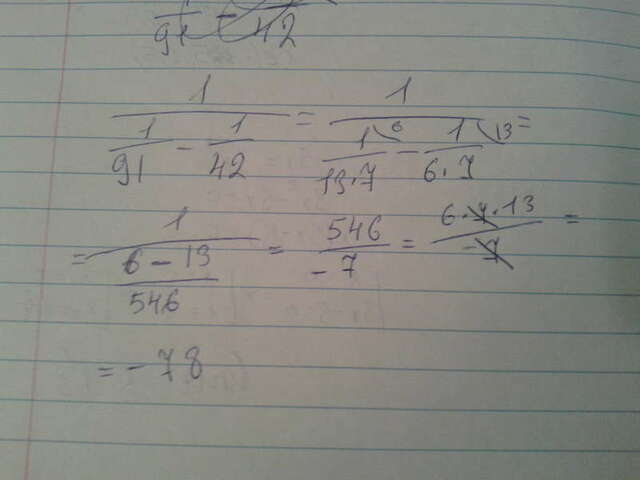 1/91 - 1/42
1/(1/91 - 1/42) = 1/(1/(13·7) - 1/(6·7)) =
= 1/((6 - 13)/546) = 546/-7 = 6·7·13/-7 =
= -78